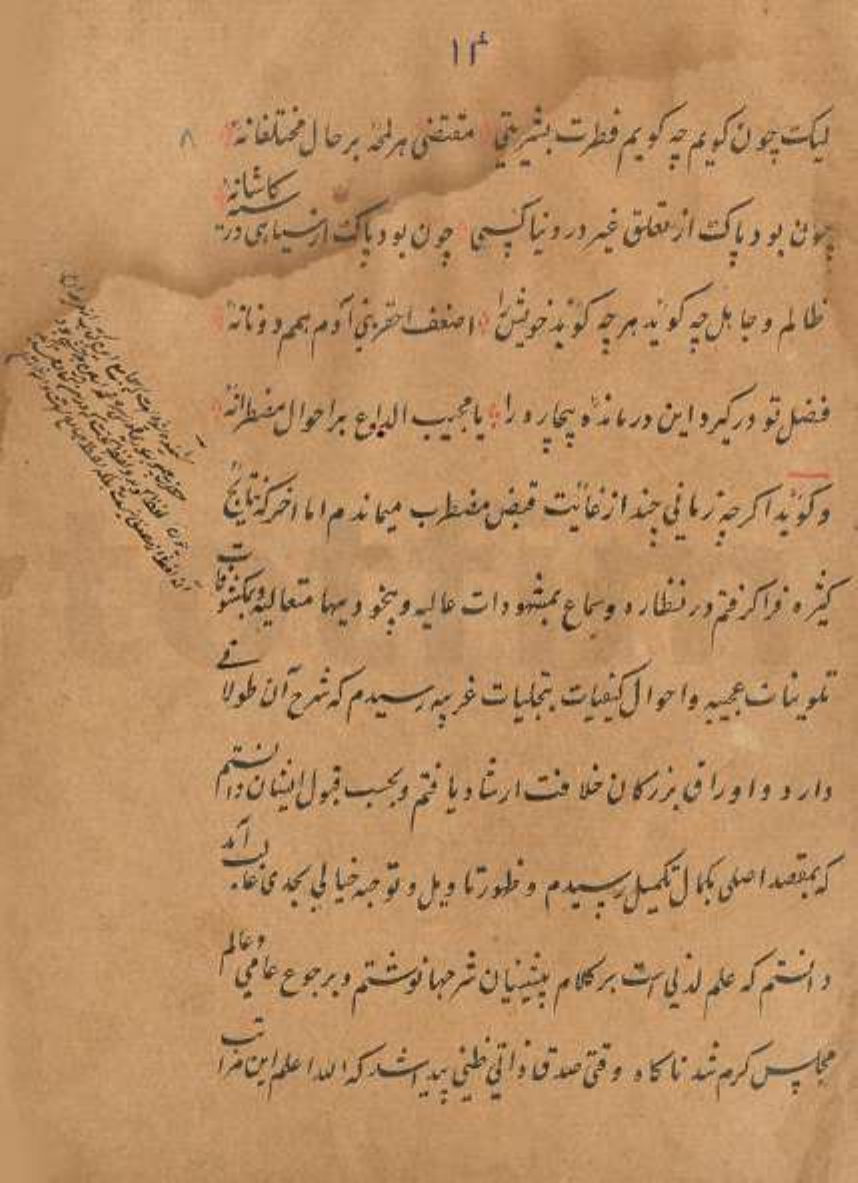 ۱۴
لیکت چون گویم چه گویم فطرت بشریتی مقتضی هر لمحه بر حال مختلفانه ۸
چون بود پاک از تعلق غیر در دنیا کسی چون بود پاک از سیاهی در کاشانه
ظالم و جاهل چه گوید هر چه گوید خویش را اضعف احقر بنی آدم همم دونانه
فضل تو درگیرد این درمانده بیچاره را یا مجیب الداع بر احوال مضطرانه
و گوید اگرچه زمانی چند از غائیت قبض مضطرب میماندم اما اخر که نتایج
کثیره فراگرفتم در نظاره و سماع بمشهودات عالیه و بیخودیها متعالیه و بمکشوفات
تلوینات عجیبه و احوال کیفیات بتجلیات غریبه رسیدم که شرح آن طولانی
دارد و اوراق بزرگان خلافت ارشاد یافتم و بحسب قبول ایشان دانستم
که بمقصد اصلی بکمال تکمیل رسیدم و ظهور تاویل و توجیه خیالی بحدی غالب آمد
دانستم که علم لدنی است بر کلام پیشینیان شرحها نوشتم و برجوع عامی و عالم
مجالس گرم شد ناگاه وقتی صدق ذاتی ظنی پیدا شد که الله اعلم این مراتب